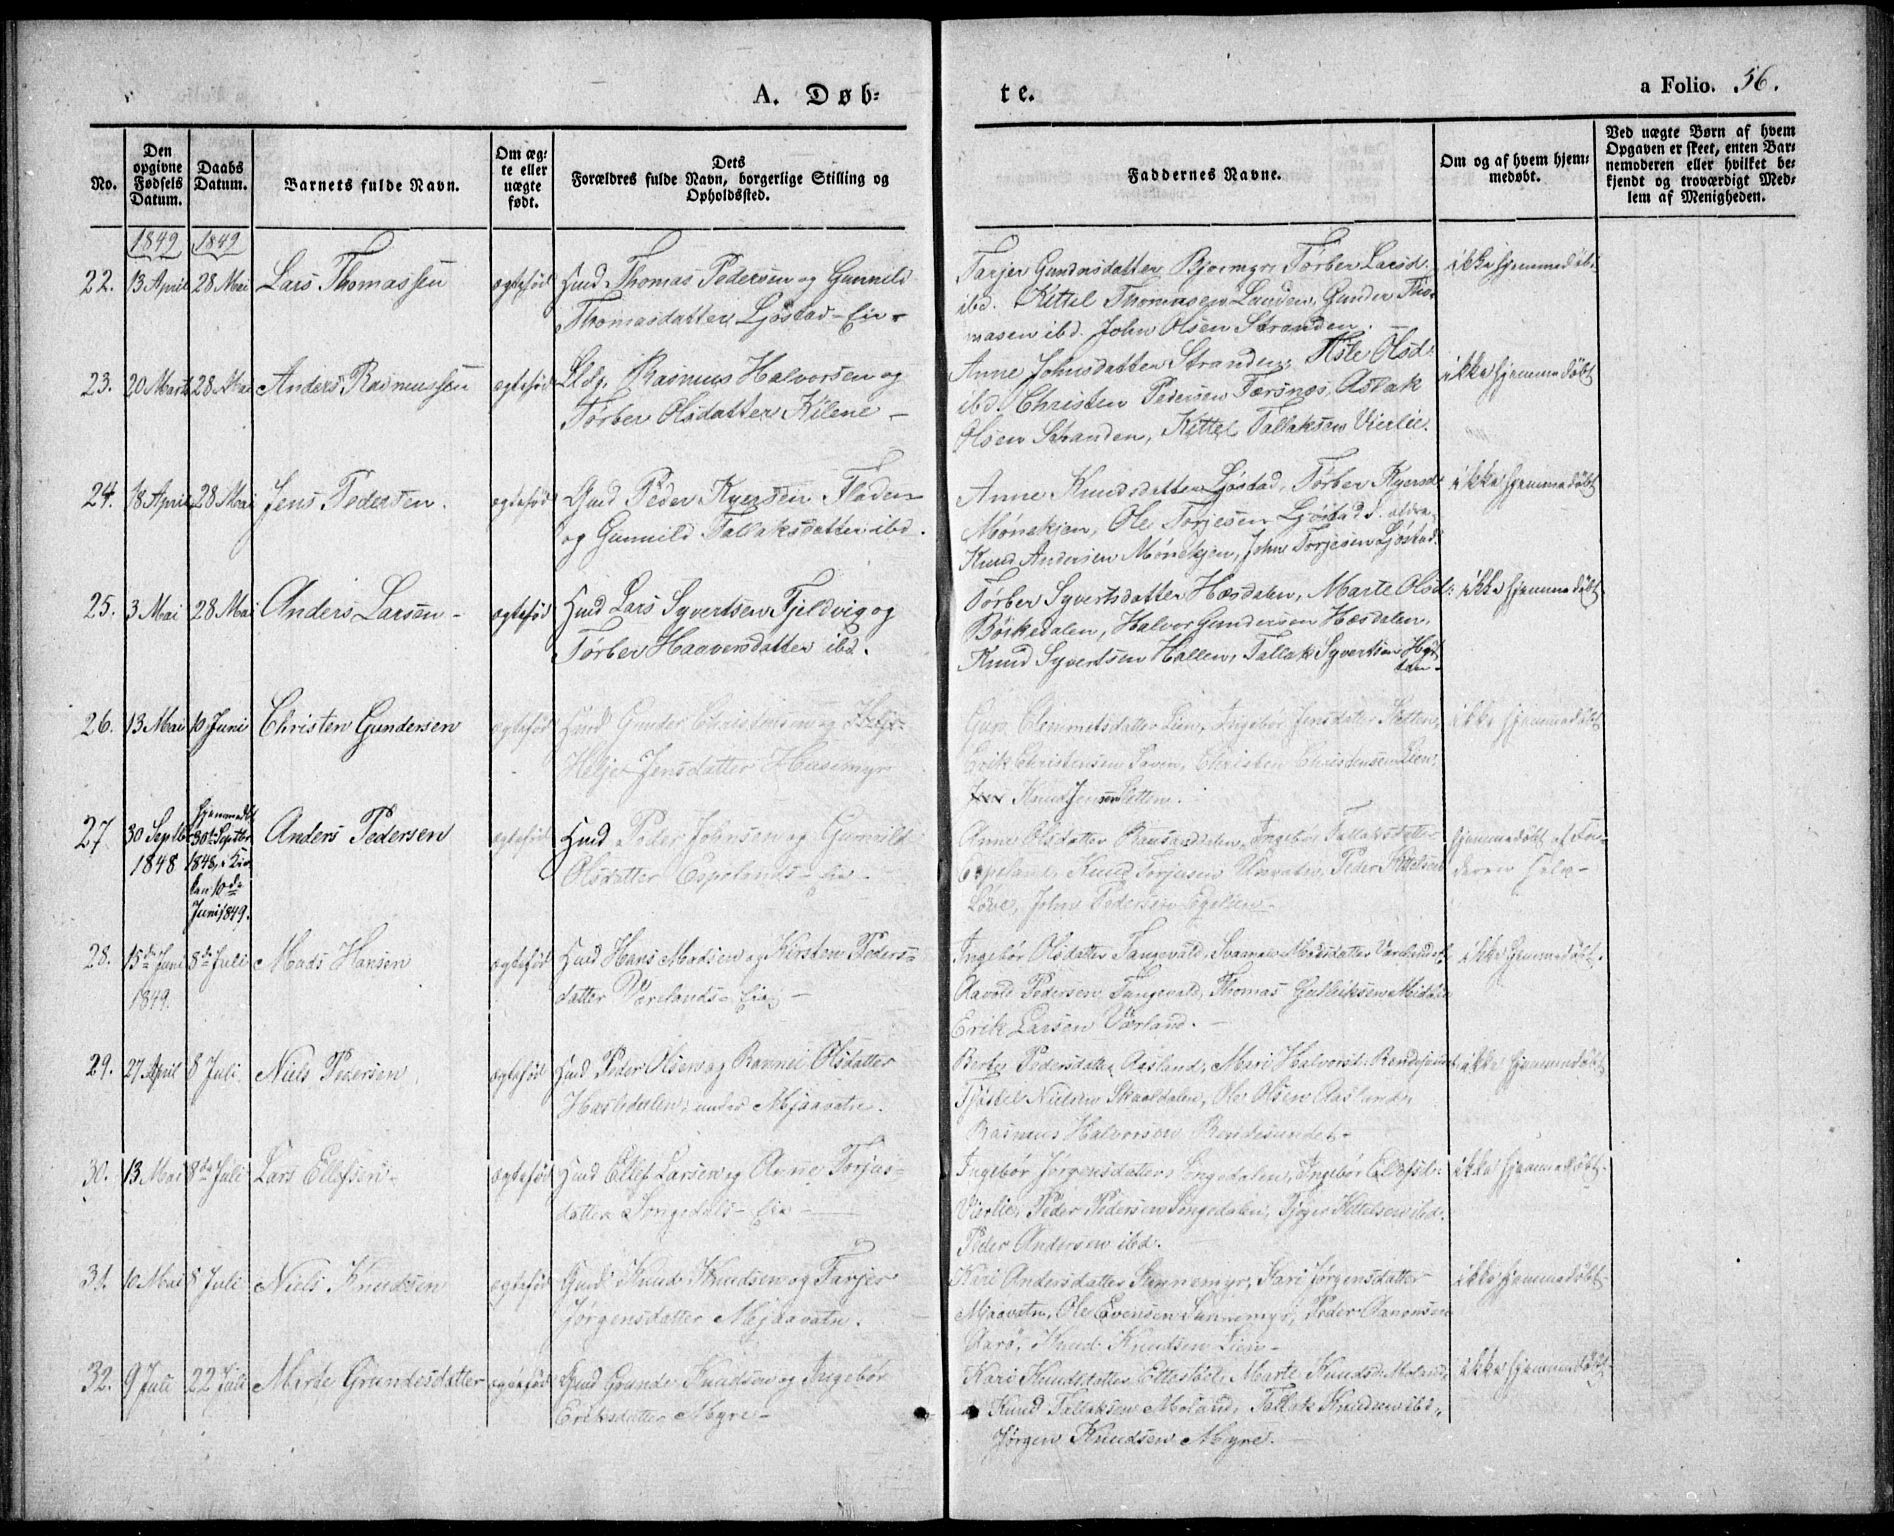 A. Døb=
te.
a Folio. 56.
No.
Den opgivne Fødsels Datum.
Daabs Datum.
Barnets fulde Navn.
Om æg=
te eller
uægte
født.
Dets
Forældres fulde Navn, borgerlige Stilling og
Opholdssted.
Faddernes Navne.
Om og af hvem hjem=
medøbt.
Ved uægte Børn af hvem
Opgaven er skeet, enten Bar=
nemoderen eller hvilket be=
kjendt og troværdigt Med=
lem af Menigheden.
1849 1849
22. 13 April 28 Mai Lars Thomassen ægtefød Huusmd Thomas Pedersen og Gunnild
Thomasdatter Ljøstad-Eie-
Tarjer Gundersdatter Bjormyr, Tørber Larsd.
ibd. Kittel Thomasen Landen, Gunder Tho-
masen ibd. John Olsen Stranden.
ikke hjemmedøbt
23. 20 Marts 28 Mai Anders Rasmussen ægtefød Rasmus Halvorsen og
Tørber Olsdatter Kilene -
Anne Johnsdatter Stranden, Asle Olsd:
ibd. Christen Pedersen Tærsnes, Aslak
Olsen Stranden, Kittel Tallaksen Vierlie.
ikke hjemmedøbt
24. 18 April 28 Mai Jens Pedersen. ægtefød Gmd Peder Kyersen Fladen
og Gunnild Tallaksdatter ibd.
Anne Knudsdatter Ljøstad, Tørber Kyersd:
Mønekjen, Ole Torjesen Ljøstad
Knud Andersen Mønekjen, John Torjesen Ljøstad.
ikke hjemmedøbt
25. 3 Mai 28 Mai Anders Larsen - ægtefød Hmd Lars Syvertsen Fjeldvig og
Tørber Haaversdatter ibd.
Tørber Syvertsdatter Hæsdalen, Marte Olsd:
Børkedalen, Halvor Gundersen Hæsdalen,
Knud Syvertsen Hallen, Tallak Syvertsen
ikke hjemmedøbt
26. 13 Mai 10 Juni Christen Gundersen ægtefød Hmd Gunder Christensen og
Helje Jensdatter Husemyr
Clemmetsdatter Lien, Ingebør Jensdatter Sletten,
Erik Christensen Christen Christensen Lien,
Knud Jensen Sletten.
ikke hjemmedøbt
27. 30 Septbr
1848
hjemmedbt
30te Septbr
1848, i Kir
ken 10de
Juni 1849.
Anders Pedersen ægtefød Hmd Peder Johnsen og Gunnild
Olsdatter Espelands-Eie -
Anne Olsdatter Ingebør Tallaksdatter
Espeland, Knud Torjusen Peder Kittelsen
Løve, John Pedersen Egelien -
hjemmedøbt af Fa-
deren selv -
28. 15de Juni
1849.
8de Juli Mads Hansen ægtefød Hmd Hans Madsen og Kirsten Peders=
datter Værlands-Eie -
Ingebør Olsdatter Tangevald, Madsdatter
Aavold Pedersen Tangevald, Thomas
Erik Larsen Værland. -
ikke hjemmedøbt.
29. 27 April 8 Juli Niels Pedersen ægtefød Hmd Peder Olsen og Ravnei Olsdatter
Hasledalen, under Mjaavatn.
Berte Pedersdatter Aasland, Mari Halvorsd:
Tjøstel Nielsen Skaaldalen, Ole Olsen Aasland,
Rasmus Halvorsen Rendesundet -
ikke hjemmedøbt
30. 13 Mai 8de Juli Lars Ellefsen - ægtefød Hmd Ellef Larsen og Anne Torjus-
datter Songedals-Eie -
Ingebør Jørgensdatter Songedalen, Ingebør Ellefsd:
Vierlie, Peder Pedersen Songedalen, Tjøger Kittelsen ibd.
Peder Andersen ibd.
ikke hjemmedøbt.
31. 10 Mai 8 Juli Niels Knudsen ægtefød Gmd Knud Knudsen og Tarjer
Jørgensdatter Mjaavatn.
Kari Andersdatter Sannemyr, Kari Jørgensdatter
Mjaavatn, Ole Evensen Sannemyr, Peder Aanonsen
Knud Knudsen Lien -
ikke hjemmedøbt.
32. 9 Juli 22 Juli Marte Gundersdatter ægtefød Gmd Gunder Knudsen og Ingebør
Eriksdatter Myre -
Kari Knudsdatter Ettestøl, Marte Knudsd. Moland,
Knud Tallaksen Moland, Tallak Knudsen ibd.,
Jørgen Knudsen Myre.
ikke hjemmedøbt